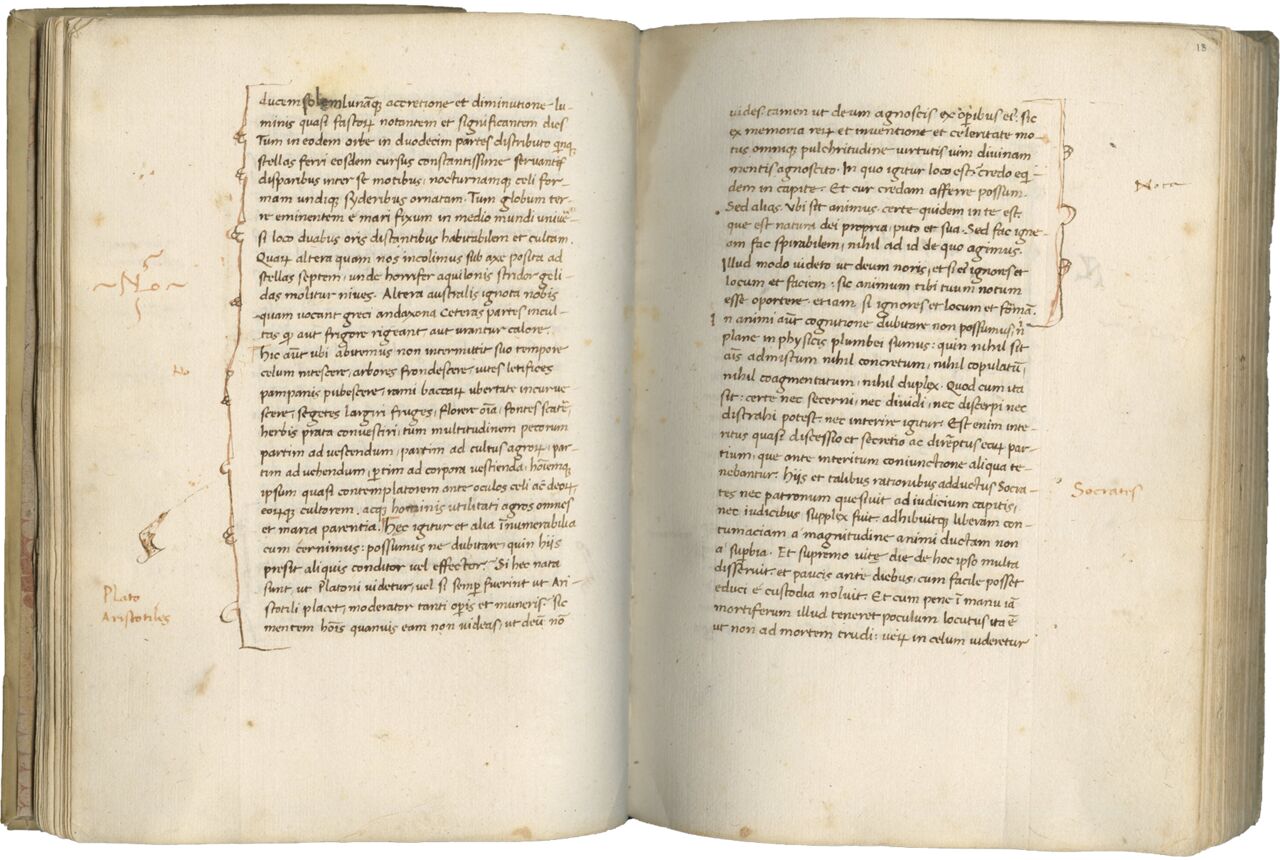 ducem solem lunamq; accretione et diminutione lu-
minis quasi fastoꝝ notantem et significantem dies
Tum in eodem orbe in duodecim partes distributo qnq;
stellas ferri eosdem cursus constantissime servantis
disparibus inter se motibus: nocturnamq; celi for-
mam undiq; syderibus ornatam. Tum globum ter-
re eminentem e mari fixum in medio mundi univer-
si loco duabus oris distantibus habitabilem et cultam.
Quaꝝ altera quam nos incolimus sub axe posita ad
stellas septem, unde horrifer aquilonis stridor geli-
das molitur nives. Altera australis ignota nobis
quam vocant greci andaxona Ceteras partes incul-
tas q aut frigore rigeant aut urantur calore.
Hic aūt ubi abitemus non intermittit suo tempore
celum nitescere, arbores frondescere, vites letifices
pampanis pubescere, rami baccaꝝ ubertate incurve-
scere, segetes largiri fruges, florere oīa, fontes scatē,
herbis prata convestiri, tum multitudinem pecorum
partim ad vescendum, partim ad cultus agroꝝ, par-
tim ad vehendum, ꝑtim ad corpora vestienda, hoīemq;
ipsum quasi contemplatorem ante oculos celi ac deoꝝ,
eoꝝq; cultorem. acq; hominis utilitati agros omnes
et maria parentia. Hec igitur et alia īnumerabilia
cum cernimus: possumus ne dubitare, quin hijs
presit aliquis conditor vel effector. Si hec nata
sunt, ut Platoni videtur, vel si semꝑ fuerint ut Ari-
stotili placet, moderator tanti oꝑis et muneris. Sic
mentem hoīs quamvis eam non videas, ut deū nō
No
Plato
Aristotiles
18
vides. tamen ut deum agnoscis ex oꝑibus eiꝰ. sic
ex memoria reꝝ et inventione et celeritate mo-
tus omniq; pulchritudine virtutis vim divinam
mentis agnoscito. In quo igitur loco est? credo eqi-
dem in capite. Et cur credam afferre possum.
Sed alias. Ubi sit animus. certe quidem in te est.
que est natura dei propria, puto et sua. Sed fac igne-
am fac spirabilem, nihil ad id de quo agimus.
Illud modo videto ut deum noris, et si eiꝰ ignores et
locum et faciem: sic animum tibi tuum notum
esse oportere. etiam si ignores et locum et formā.
In animi aūt cognitione dubitare non possumus, ni
plane in physicis plumbei sumus: quin nihil sit
aīs admistum nihil concretum, nihil copulatū,
nihil coagmentatum, nihil duplex. Quod cum ita
sit: certe nec secerni, nec dividi, nec discerpi nec
distrahi potest. nec interire igitur. Est enim inte-
ritus quasi discessio et secretio ac direptus eaꝝ par-
tium, que ante interitum coniunctione aliqua te-
nebantur. Hijs et talibus rationibus adductus Socra-
tes nec patronum quesivit ad iudicium capitis,
nec iudicibus supplex fuit. adhibuitq; liberam con-
tumaciam a magnitudine animi ductam non
a suꝑbia. Et supremo vitę die de hoc ipso multa
disseruit. et paucis ante diebus, cum facile posset
educi e custodia noluit. Et cum pene ī manu iā
mortiferum illud teneret poculum locutus ita ē
ut non ad mortem trudi: veꝝ in celum videretur
Nota
Socrates